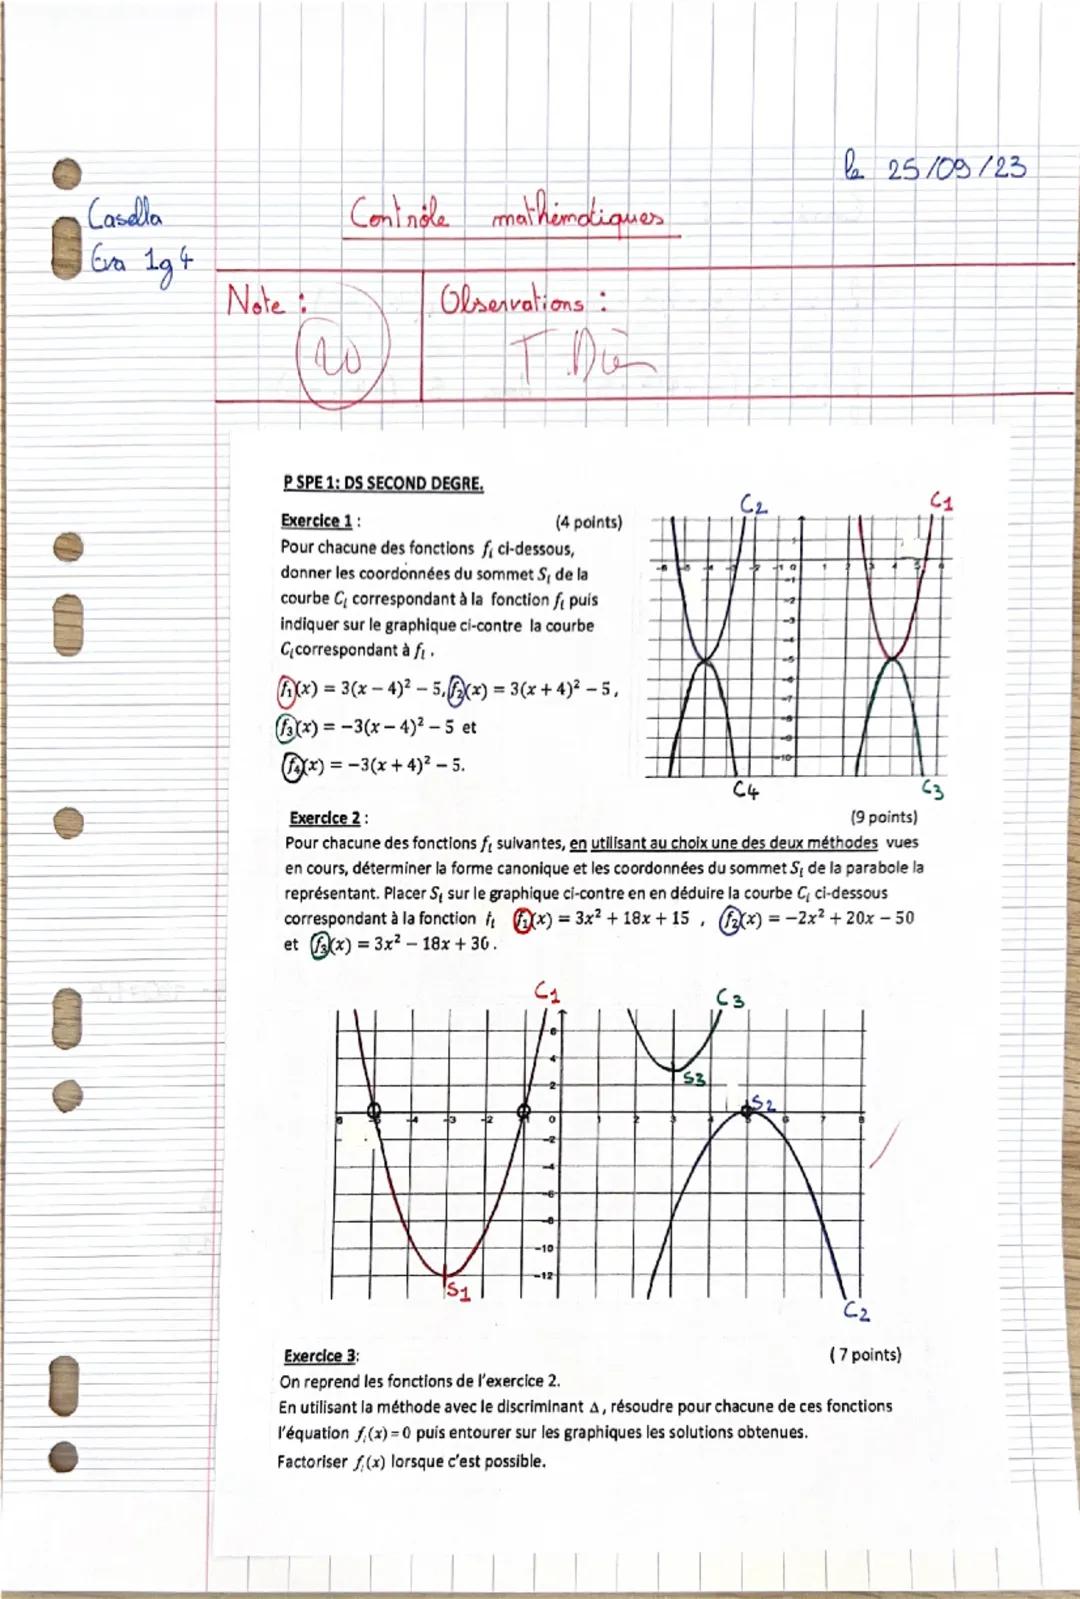 le 25/09/23
Casella
Eva 1g4
Contrôle mathématiques
Note :
Observations :
20
T. Bien
P SPE 1: DS SECOND DEGRE.
Exercice 1 : (4 points)
Pour chacune des fonctions fᵢ ci-dessous,
donner les coordonnées du sommet Sᵢ de la
courbe Cᵢ correspondant à la fonction fᵢ puis
indiquer sur le graphique ci-contre la courbe
Cᵢ correspondant à fᵢ .
f₁(x) = 3(x − 4)² − 5, f₂(x) = 3(x + 4)² − 5,
f₃(x) = −3(x − 4)² − 5 et
f₄(x) = −3(x + 4)² − 5.
C2 C1
C4 C3
Exercice 2 : (9 points)
Pour chacune des fonctions fᵢ suivantes, en utilisant au choix une des deux méthodes vues
en cours, déterminer la forme canonique et les coordonnées du sommet Sᵢ de la parabole la
représentant. Placer Sᵢ sur le graphique ci-contre en en déduire la courbe Cᵢ ci-dessous
correspondant à la fonction fᵢ f₁(x) = 3x² + 18x + 15 , f₂(x) = −2x² + 20x − 50
et f₃(x) = 3x² − 18x + 30 .
C1 C3
S3
S2
S1
C2
Exercice 3: ( 7 points)
On reprend les fonctions de l'exercice 2.
En utilisant la méthode avec le discriminant Δ, résoudre pour chacune de ces fonctions
l'équation fᵢ(x) = 0 puis entourer sur les graphiques les solutions obtenues.
Factoriser fᵢ(x) lorsque c'est possible.